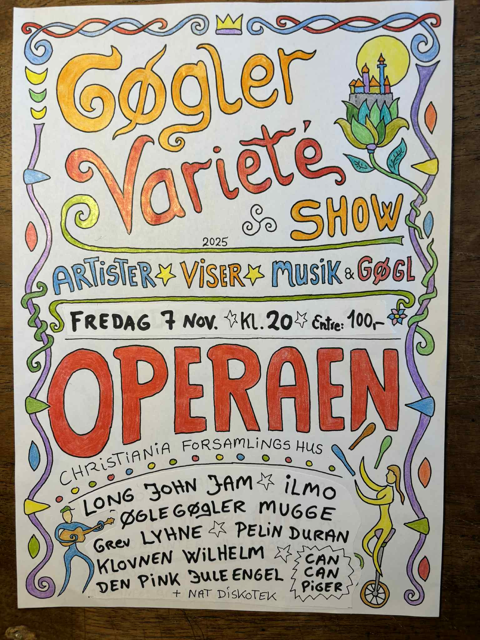 Gøgler
Varieté
SHOW
2025
ARTISTER ☆ VISER ☆ MUSIK & GØGL
FREDAG 7 NOV. ☆ KL. 20 ☆ Entre: 100,-
OPERAEN
CHRISTIANIA FORSAMLINGSHUS
LONG JOHN JAM ☆ iLMO
ØGLEGØGLER MUGGE
Grev LYHNE ☆ PELiN DURAN
KLOVNEN WiLHELM ☆
DEN PiNK JULEENGEL
CAN
CAN
PiGER
+ NAT DISKOTEK